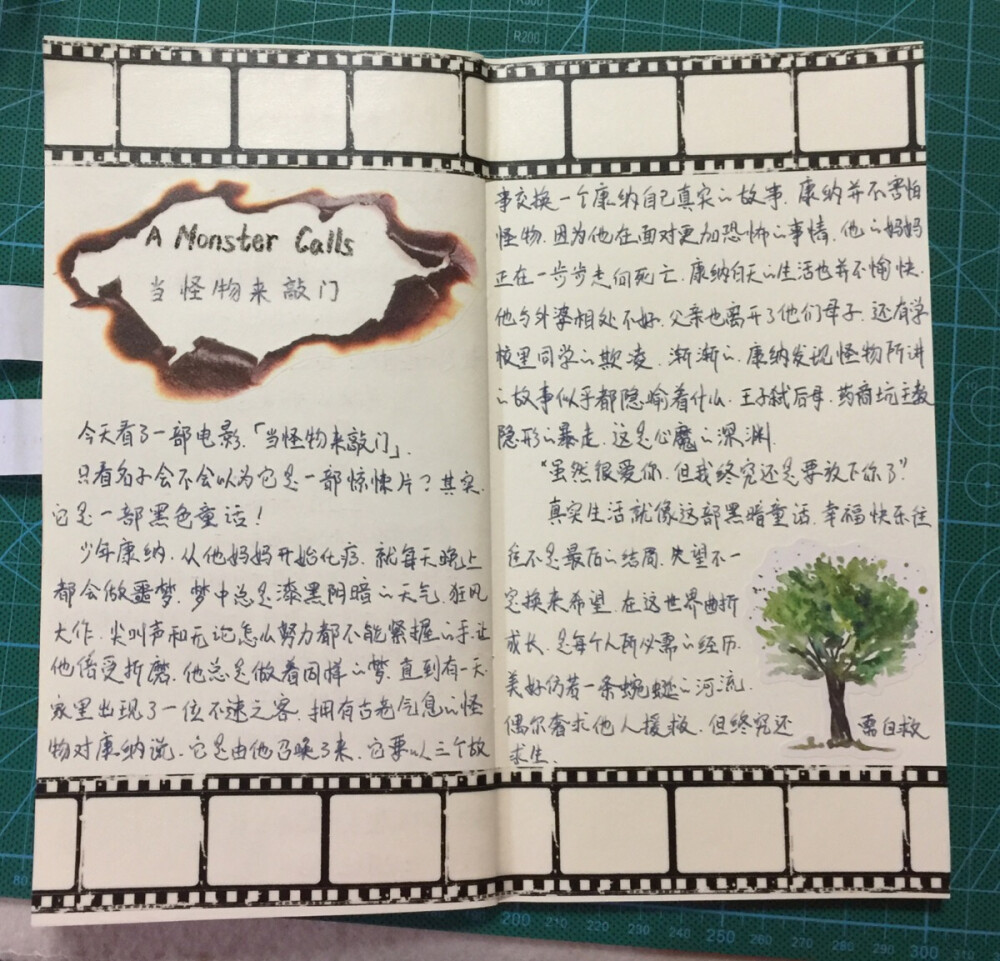 A Monster Calls
当怪物来敲门
今天看了一部电影.「当怪物来敲门」.
只看名子会不会以为它是一部惊悚片？其实.
它是一部黑色童话！
少年康纳.从他妈妈开始化疗.就每天晚上
都会做噩梦.梦中总是漆黑阴暗的天气.狂风
大作.尖叫声和无论怎么努力都不能紧握的手.让
他倍受折磨.他总是做着同样的梦.直到有一天.
家里出现了一位不速之客.拥有古老气息的怪
物对康纳说.它是由他召唤了来.它要以三个故
事交换一个康纳自己真实的故事.康纳并不害怕
怪物.因为他在面对更加恐怖的事情.他的妈妈
正在一步步走向死亡.康纳白天的生活也并不愉快.
他与外婆相处不好.父亲也离开了他们母子.还有学
校里同学的欺凌.渐渐的.康纳发现怪物所讲
的故事似乎都隐喻着什么.王子弑后母.药商坑主教
隐形的暴走.这是心魔的深渊.
“虽然很爱你.但我终究还是要放下你了”
真实生活就像这部黑暗童话.幸福快乐往
往不是最后的结局.失望不一
定换来希望.在这世界曲折
成长.是每个人所必需的经历.
美好仿若一条蜿蜒的河流.
偶尔奢求他人援救.但终究还 需自救
求生.
R200
80
200 210 220 230 240 250 260 270 280 290 300 310